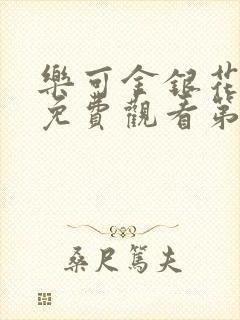 樂可金銀花
免費觀看第
桑尺篤夫